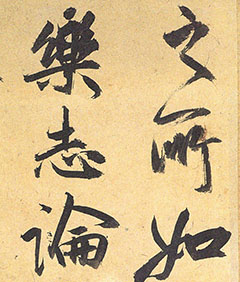 之所如
樂志論